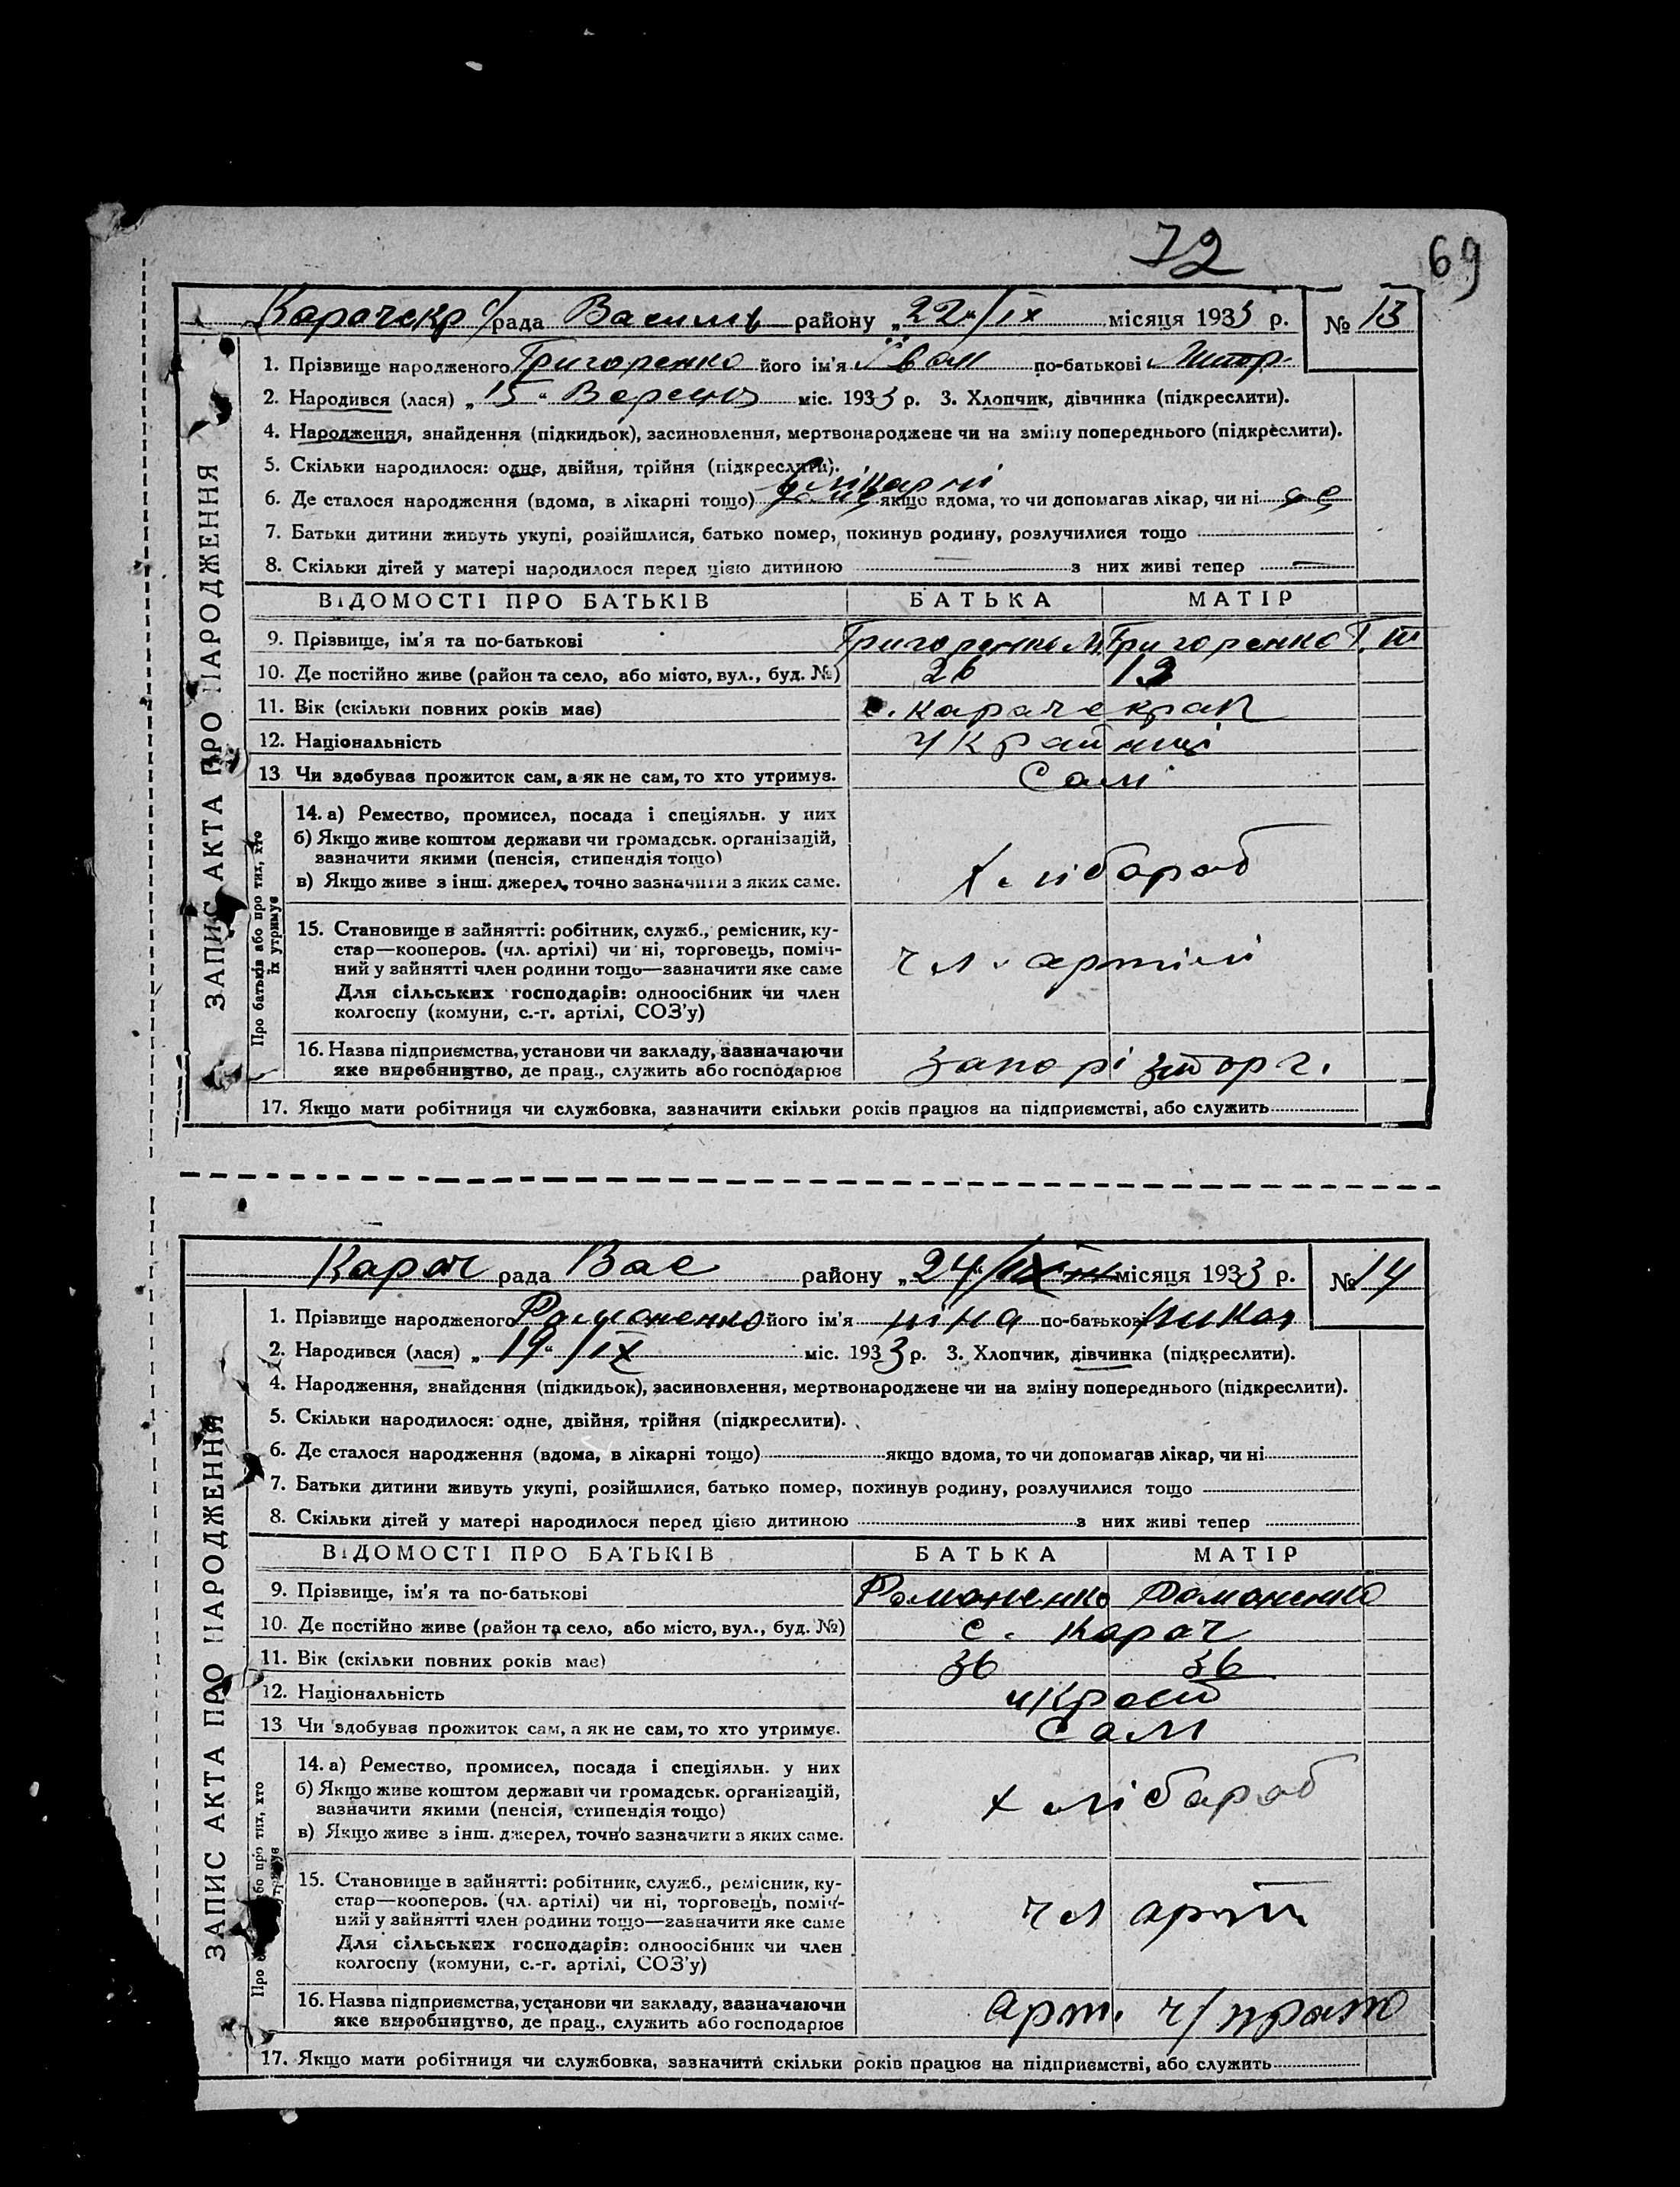 72
69
Карачекр с/рада Василів району „22“/IX місяця 1933 р. № 13
ЗАПИС АКТА ПРО НАРОДЖЕННЯ
1. Прізвище народженого Григоренко його ім'я Іван по-батькові
2. Народився (лася) „15“ Верець міс. 1933 р. 3. Хлопчик, дівчинка (підкреслити).
4. Народження, знайдення (підкидьок), засиновлення, мертвонароджене чи на зміну попереднього (підкреслити).
5. Скільки народилося: одне, двійня, трійня (підкреслити).
6. Де сталося народження (вдома, в лікарні тощо) в лікарні якщо вдома, то чи допомагав лікар, чи ні
7. Батьки дитини живуть укупі, розійшлися, батько помер, покинув родину, розлучилися тощо
8. Скільки дітей у матері народилося перед цією дитиною — з них живі тепер —
ВІДОМОСТІ ПРО БАТЬКІВ БАТЬКА МАТІР
9. Прізвище, ім'я та по-батькові Григоренко М. Григоренко Т. Ш
10. Де постійно живе (район та село, або місто, вул., буд. №) 26 19
11. Вік (скільки повних років має) с. Карачекрак
12. Національність Українці
13 Чи здобував прожиток сам, а як не сам, то хто утримує. Самі
Про батьків або про тих, хто їх утримує
14. а) Ремество, промисел, посада і спеціяльн. у них
б) Якщо живе коштом держави чи громадськ. організацій,
зазначити якими (пенсія, стипендія тощо)
в) Якщо живе з інш. джерел, точно зазначити з яких саме.
хлібароб
15. Становище в зайнятті: робітник, служб., ремісник, ку-
стар—кооперов. (чл. артілі) чи ні, торговець, поміч-
ний у зайнятті член родини тощо—зазначити яке саме
Для сільських господарів: одноосібник чи член
колгоспу (комуни, с.-г. артілі, СОЗ'у)
чл. артілі
16. Назва підприємства, установи чи закладу, зазначаючи
яке виробництво, де прац., служить або господарює
Запорізторг.
17. Якщо мати робітниця чи службовка, зазначити скільки років працює на підприємстві, або служить
Карач рада Вас району „24“/IX місяця 1933 р. № 14
ЗАПИС АКТА ПРО НАРОДЖЕННЯ
1. Прізвище народженого Рамоненко його ім'я ніна по-батькові Микол
2. Народився (лася) „19“ /IX міс. 1933 р. 3. Хлопчик, дівчинка (підкреслити).
4. Народження, знайдення (підкидьок), засиновлення, мертвонароджене чи на зміну попереднього (підкреслити).
5. Скільки народилося: одне, двійня, трійня (підкреслити).
6. Де сталося народження (вдома, в лікарні тощо) якщо вдома, то чи допомагав лікар, чи ні
7. Батьки дитини живуть укупі, розійшлися, батько помер, покинув родину, розлучилися тощо
8. Скільки дітей у матері народилося перед цією дитиною з них живі тепер
ВІДОМОСТІ ПРО БАТЬКІВ БАТЬКА МАТІР
9. Прізвище, ім'я та по-батькові Рамоненко Рамоненко
10. Де постійно живе (район та село, або місто, вул., буд. №) с. Карач
11. Вік (скільки повних років має) 36 36
12. Національність
13 Чи здобував прожиток сам, а як не сам, то хто утримує. Самі
14. а) Ремество, промисел, посада і спеціяльн. у них
б) Якщо живе коштом держави чи громадськ. організацій,
зазначити якими (пенсія, стипендія тощо)
в) Якщо живе з інш. джерел, точно зазначити з яких саме.
хлібароб
15. Становище в зайнятті: робітник, служб., ремісник, ку-
стар—кооперов. (чл. артілі) чи ні, торговець, поміч-
ний у зайнятті член родини тощо—зазначити яке саме
Для сільських господарів: одноосібник чи член
колгоспу (комуни, с.-г. артілі, СОЗ'у)
чл арті
16. Назва підприємства, установи чи закладу, зазначаючи
яке виробництво, де прац., служить або господарює
Арт. ч/прап
17. Якщо мати робітниця чи службовка, зазначити скільки років працює на підприємстві, або служить